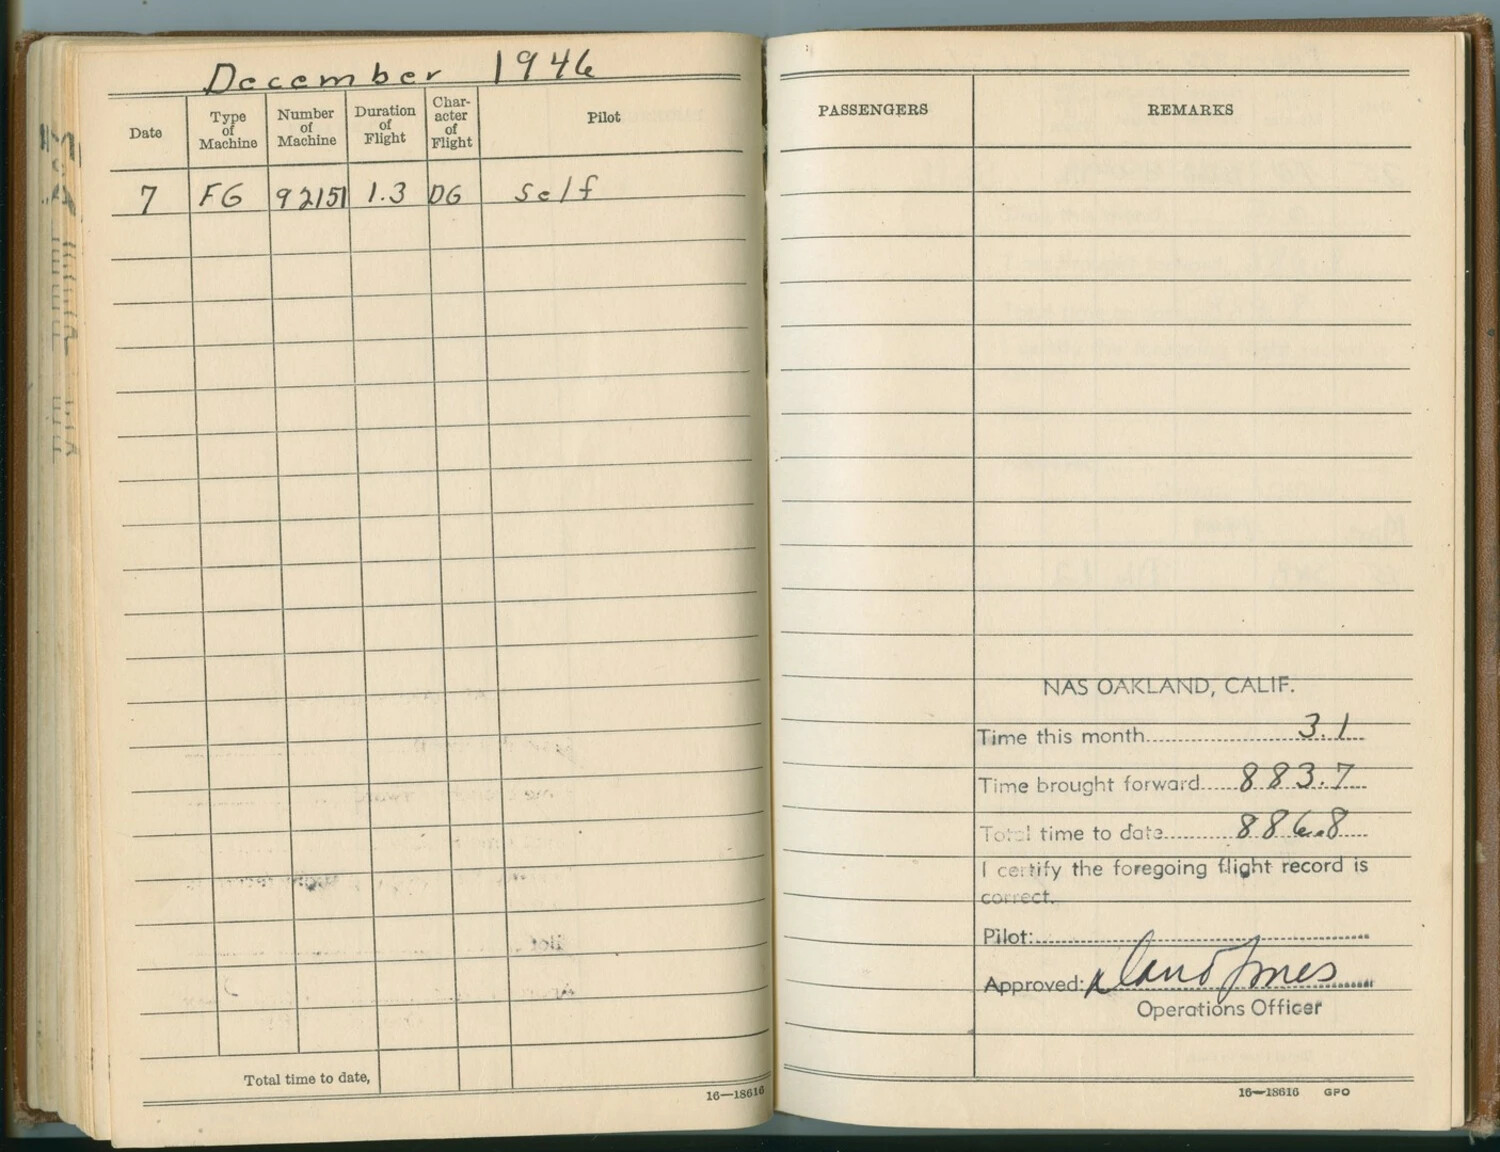 December 1946
Date Type of Machine Number of Machine Duration of Flight Char-acter of Flight Pilot
7 FG 92151 1.3 DG Self
Total time to date,
16—18616
PASSENGERS REMARKS
NAS OAKLAND, CALIF.
Time this month 3.1
Time brought forward 883.7
Total time to date 886.8
I certify the foregoing flight record is
correct.
Pilot:
Approved: Jones
Operations Officer
16—18616 GPO